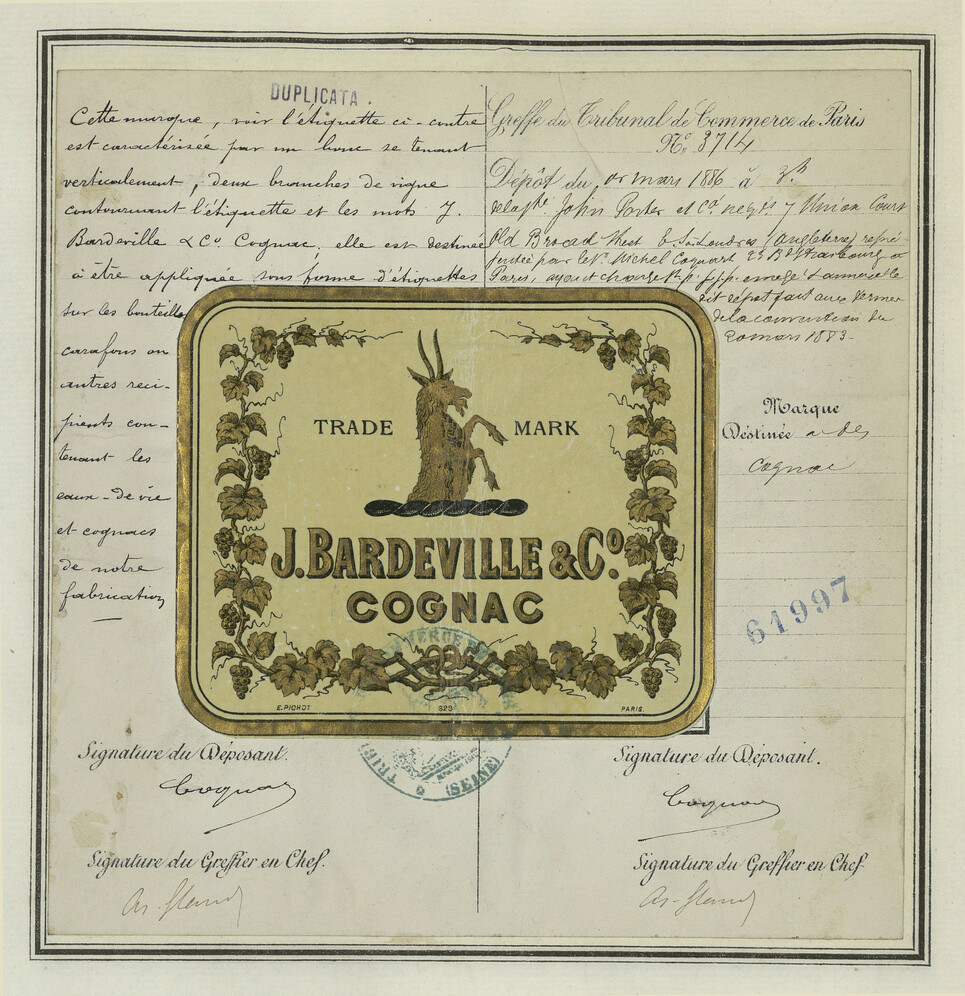 DUPLICATA.
Cette marque, voir l'étiquette ci-contre
est caractérisée par un bouc se tenant
verticalement, deux branches de vigne
contournant l'étiquette et les mots J.
Bardeville & Co. Cognac; elle est destinée
à être appliquée sous forme d'étiquettes
sur les bouteilles
carafons ou
autres réci-
pients con-
tenant les
eaux-de-vie
et cognacs
de notre
fabrication
Greffe du Tribunal de Commerce de Paris
No. 3714
Dépôt du mars 1886 à 3h
John Porter et Co. négts 7 Union Court
Old Broad Street à Londres (Angleterre) repré-
senté par le Sr. Michel Cognart 23 Bd Strasbourg à
Paris, ayant charge
dit dépôt fait aux termes
de la convention du
20 mars 1883.
Marque
Déstinée à des
cognac
61997
TRADE MARK
J. BARDEVILLE & Co.
COGNAC
E. PICHOT 323 PARIS.
(SEINE)
Signature du Déposant.
Signature du Greffier en Chef.
Signature du Déposant.
Signature du Greffier en Chef